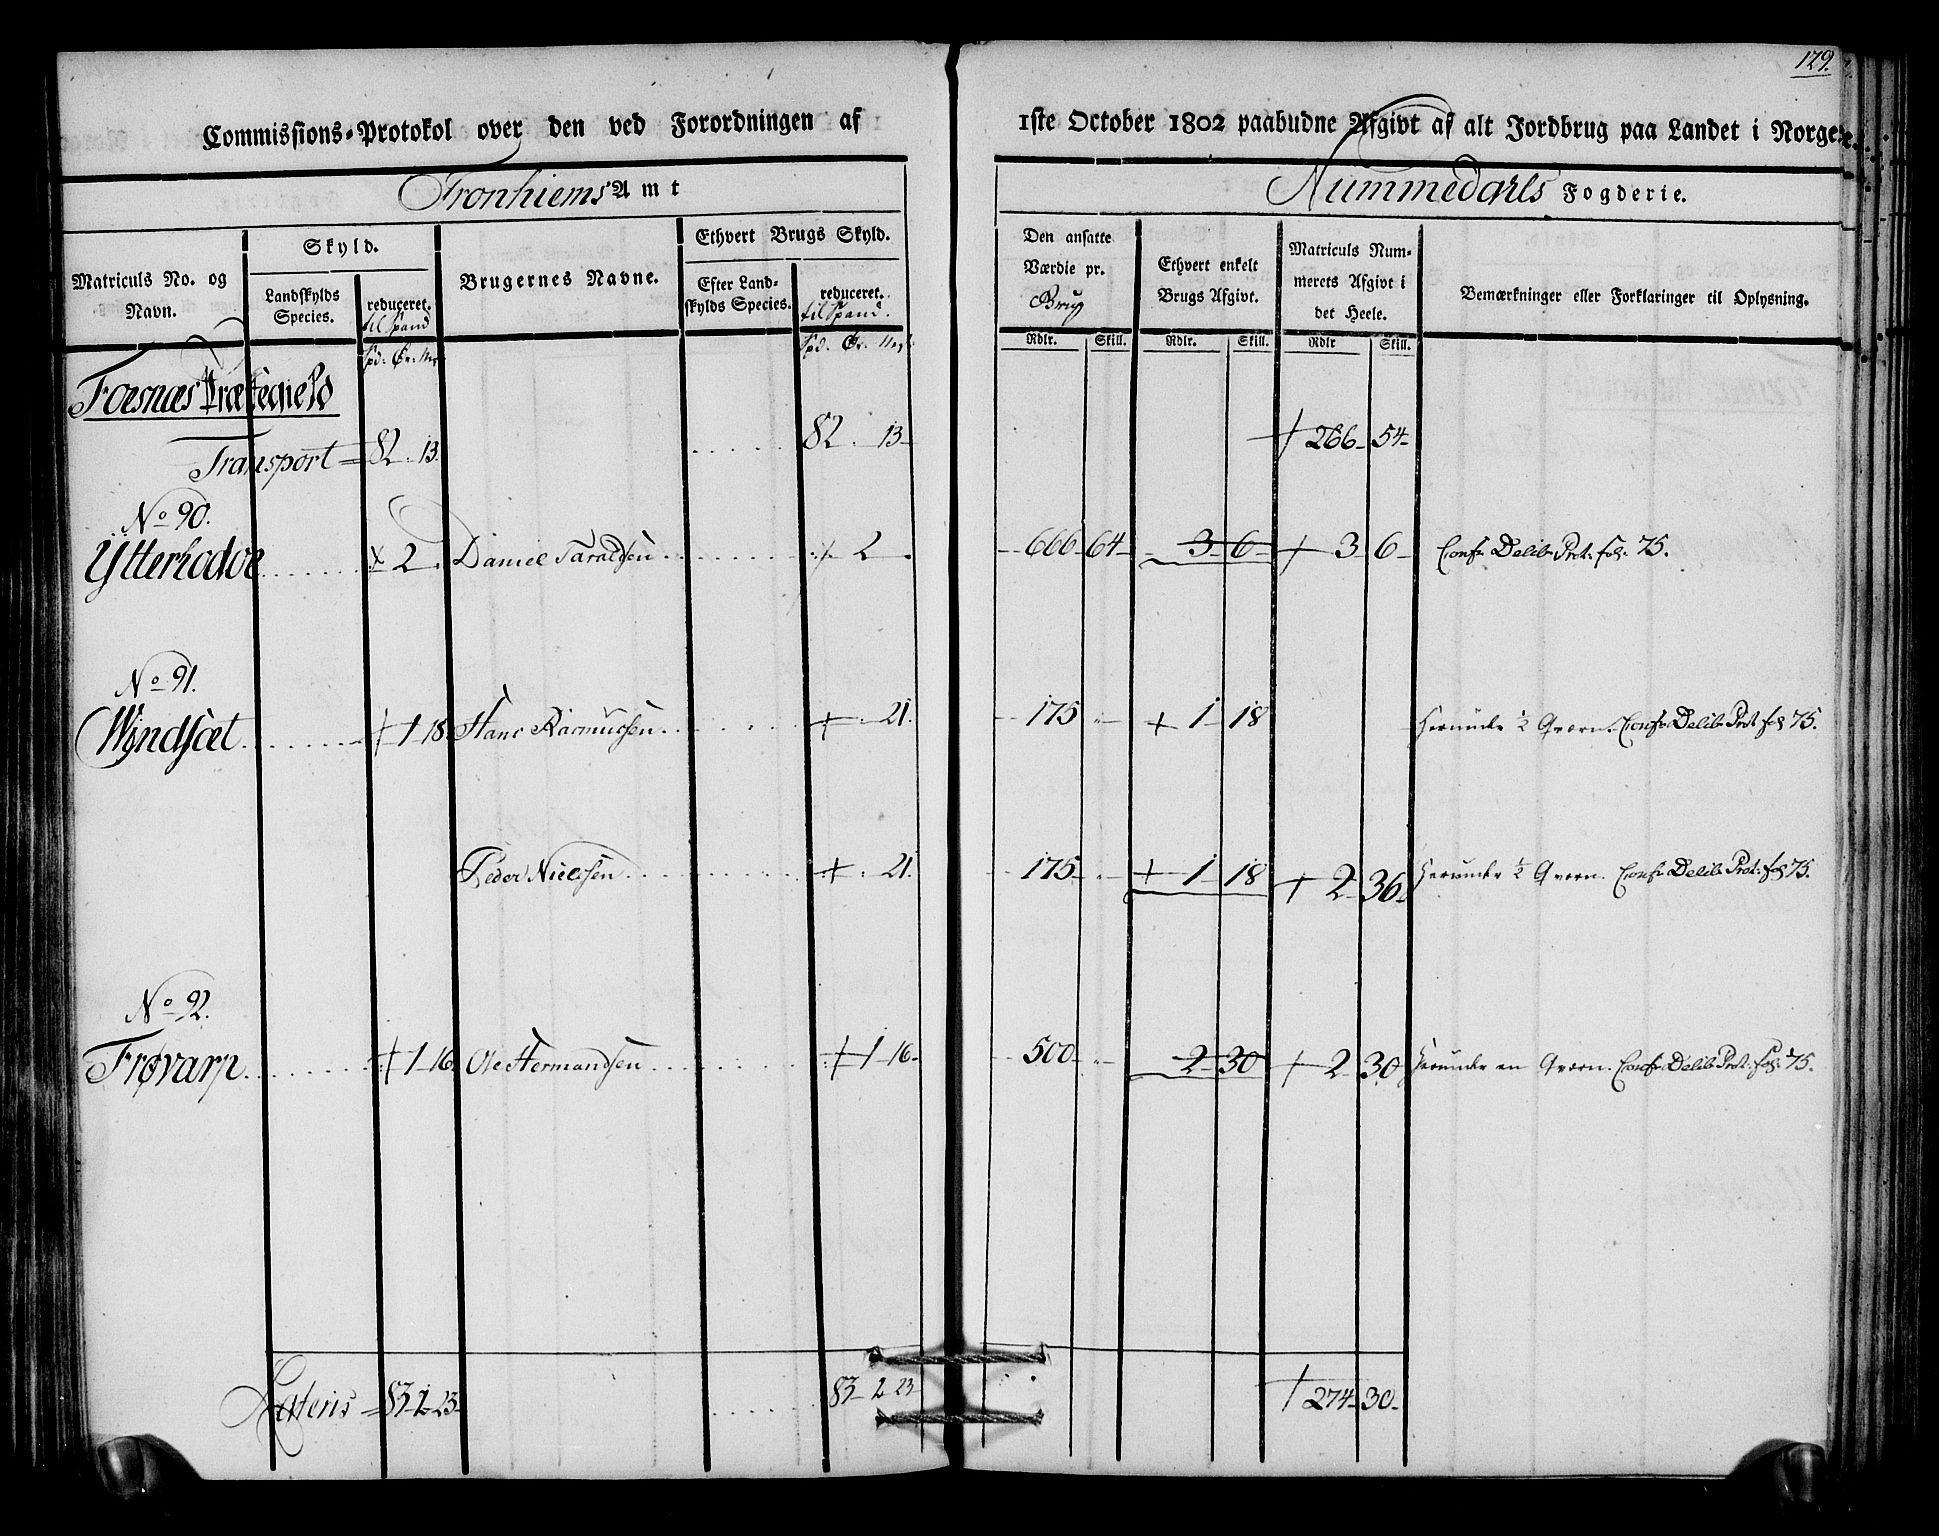 129.
Commissions-Protokol over den ved Forordningen af 1ste October 1802 paabudne Afgivt af alt Jordbrug paa Landet i Norge.
Tronhiems Amt Nummedahls Fogderie.
Matriculs No. og Navn. Skyld. Landskylds Species. reduceret. til Spand Brugernes Navne. Ethvert Brugs Skyld. Efter Land-skylds Species. reduceret. til Spand. Den ansatte Værdie pr. Brug Ethvert enkelt Brugs Afgivt. Matriculs Num-merets Afgivt i det Heele. Bemærkninger eller Forklaringer til Oplysning.
Spd. Ør. Mrk Spd. Ør. Mrk Rdlr. Skill. Rdlr. Skill. Rdlr Skill.
Foesnæs Præstegield
Transport = 82. 13. 82. 13 266 54
No 90.
Ytterhodøe 2. Daniel Taraldsen 2. 666 64 3 6 3 6 Conf. Delib. Prot. fol. 75.
No 91.
Wyndsæt 1 18 Hans Rasmussen 21. 175 1 18 Herunder ½ Qværn. Conf. Delib. Prot fol 75.
Peder Nielssen 21. 175 1 18 2 36 Herunder ½ Qværn. Conf. Delib. Prot. fol 75.
No 92.
Frøvarp 1 16 Ole Hermandsen 1 16 500 2 30 2 30 Herunder en Qværn. Conf. Delib. Prot. fol. 75.
Lateris = 83 2 23 83 2 23 274 30